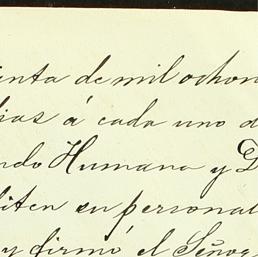 inta de mil ochon
ias á cada uno d
ndo Humana y D
liten su personal
y firmó el Señor